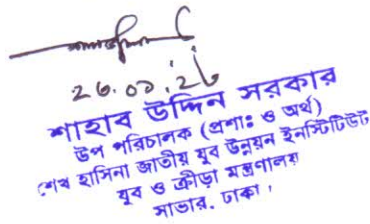 ২৬.০১.২৬
শাহাব উদ্দিন সরকার
উপ পরিচালক (প্রশাঃ ও অর্থ)
শেখ হাসিনা জাতীয় যুব উন্নয়ন ইনস্টিটিউট
যুব ও ক্রীড়া মন্ত্রণালয়
সাভার, ঢাকা।